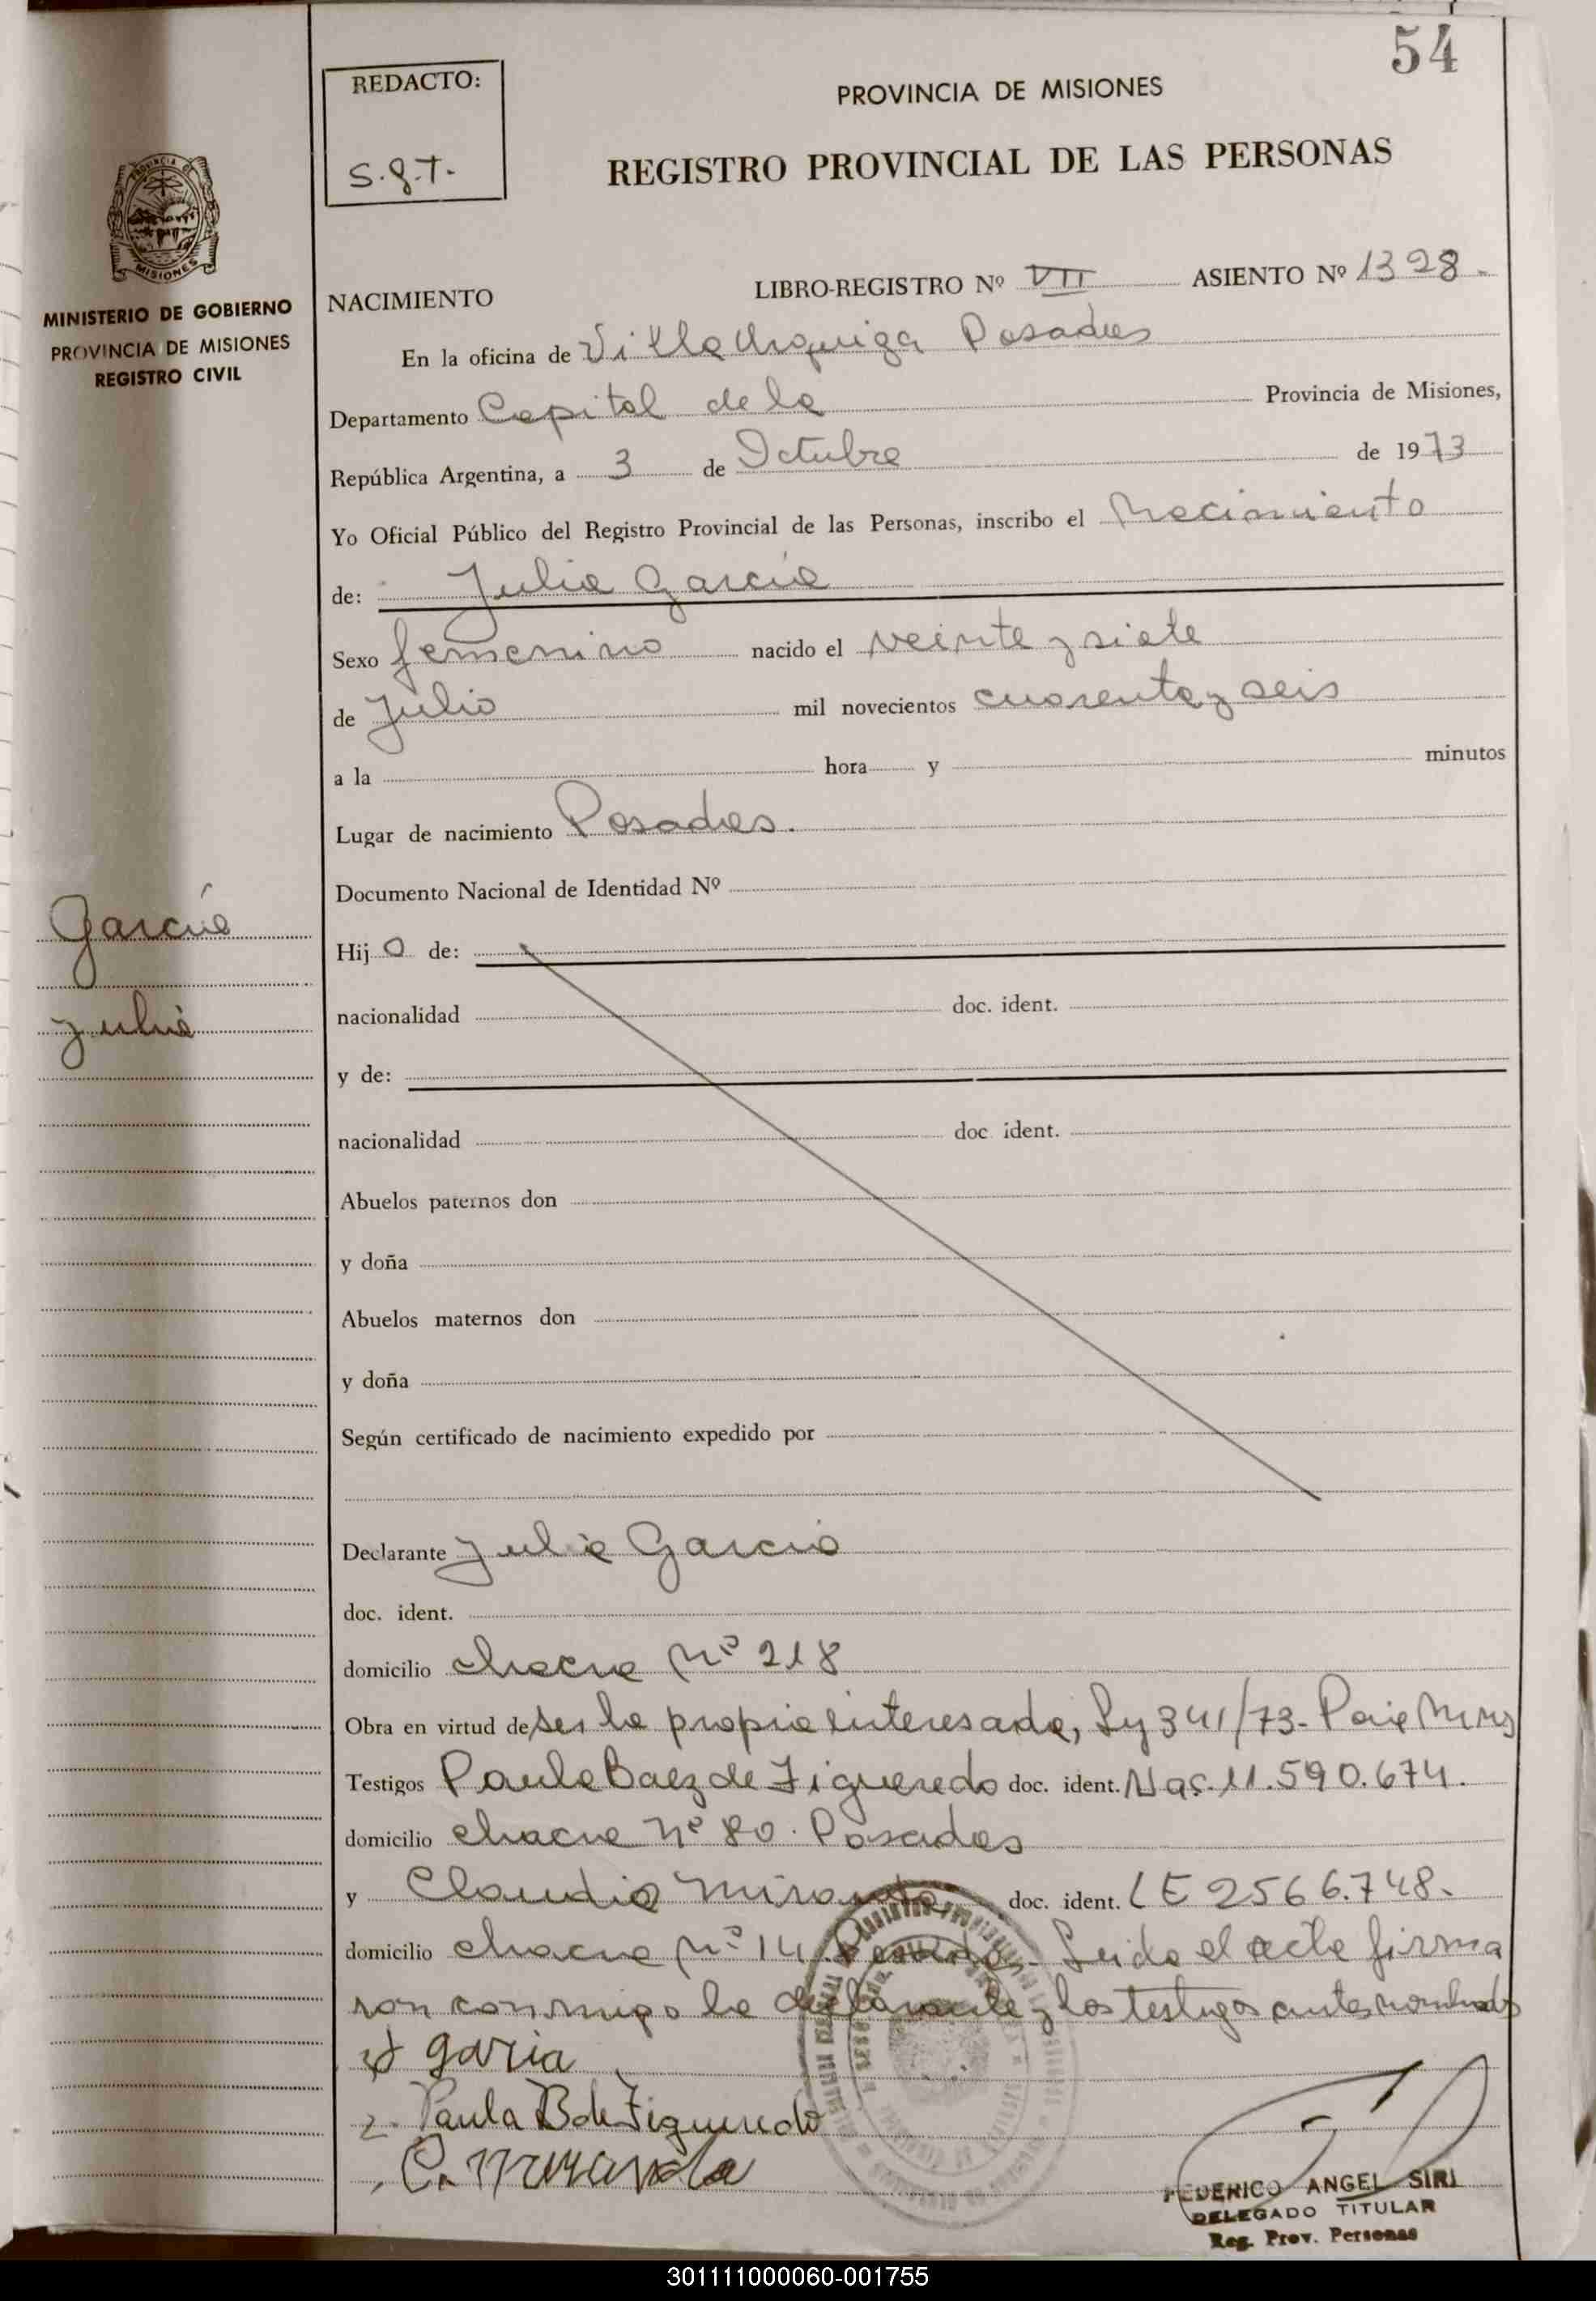 54
REDACTO:
S.G.T.
PROVINCIA DE MISIONES
REGISTRO PROVINCIAL DE LAS PERSONAS
PROVINCIA
MISIONES
MINISTERIO DE GOBIERNO
PROVINCIA DE MISIONES
REGISTRO CIVIL
NACIMIENTO LIBRO-REGISTRO Nº VII ASIENTO Nº 1328.
En la oficina de Villa Urquiza Posadas
Departamento Capital de la Provincia de Misiones,
República Argentina, a 3 de Octubre de 1973
Yo Oficial Público del Registro Provincial de las Personas, inscribo el Nacimiento
de: Julia García
Sexo femenino nacido el veinte y siete
de Julio mil novecientos cuarenta y seis
a la hora y minutos
Lugar de nacimiento Posadas.
Documento Nacional de Identidad Nº
García
Julia
Hij o de:
nacionalidad doc. ident.
y de:
nacionalidad doc. ident.
Abuelos paternos don
y doña
Abuelos maternos don
y doña
Según certificado de nacimiento expedido por
Declarante Julia Garcia
doc. ident.
domicilio chacra Nº 218
Obra en virtud de ser la propia interesada, Ley 341/73-
Testigos Paula Baez de Figueredo doc. ident. Nac. 11.590.674.
domicilio chacra nº 80. Posadas
y Claudio Miranda doc. ident. LE 2566.748.
domicilio chacra Nº 14 Posadas. Leida el acta firma
ron conmigo la declarante y los testigos antes nombrados
garia
2. Paula B de Figueredo
C. Miranda
FEDERICO ANGEL SIRI
DELEGADO TITULAR
Reg. Prov. Personas
301111000060-001755